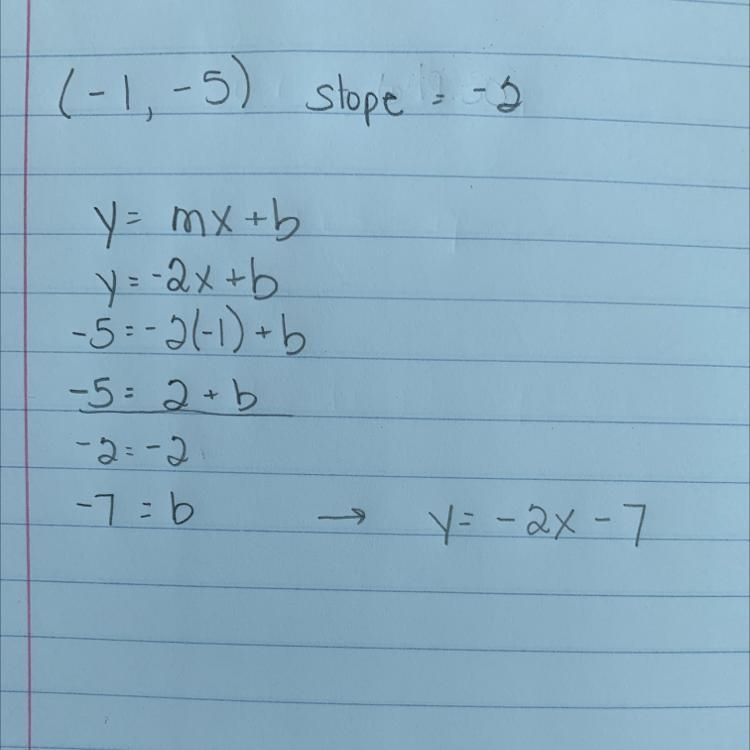 (-1, -5) slope = -2
y = mx + b
y = -2x + b
-5 = -2(-1) + b
-5 = 2 + b
-2 = -2
-7 = b → y = -2x - 7